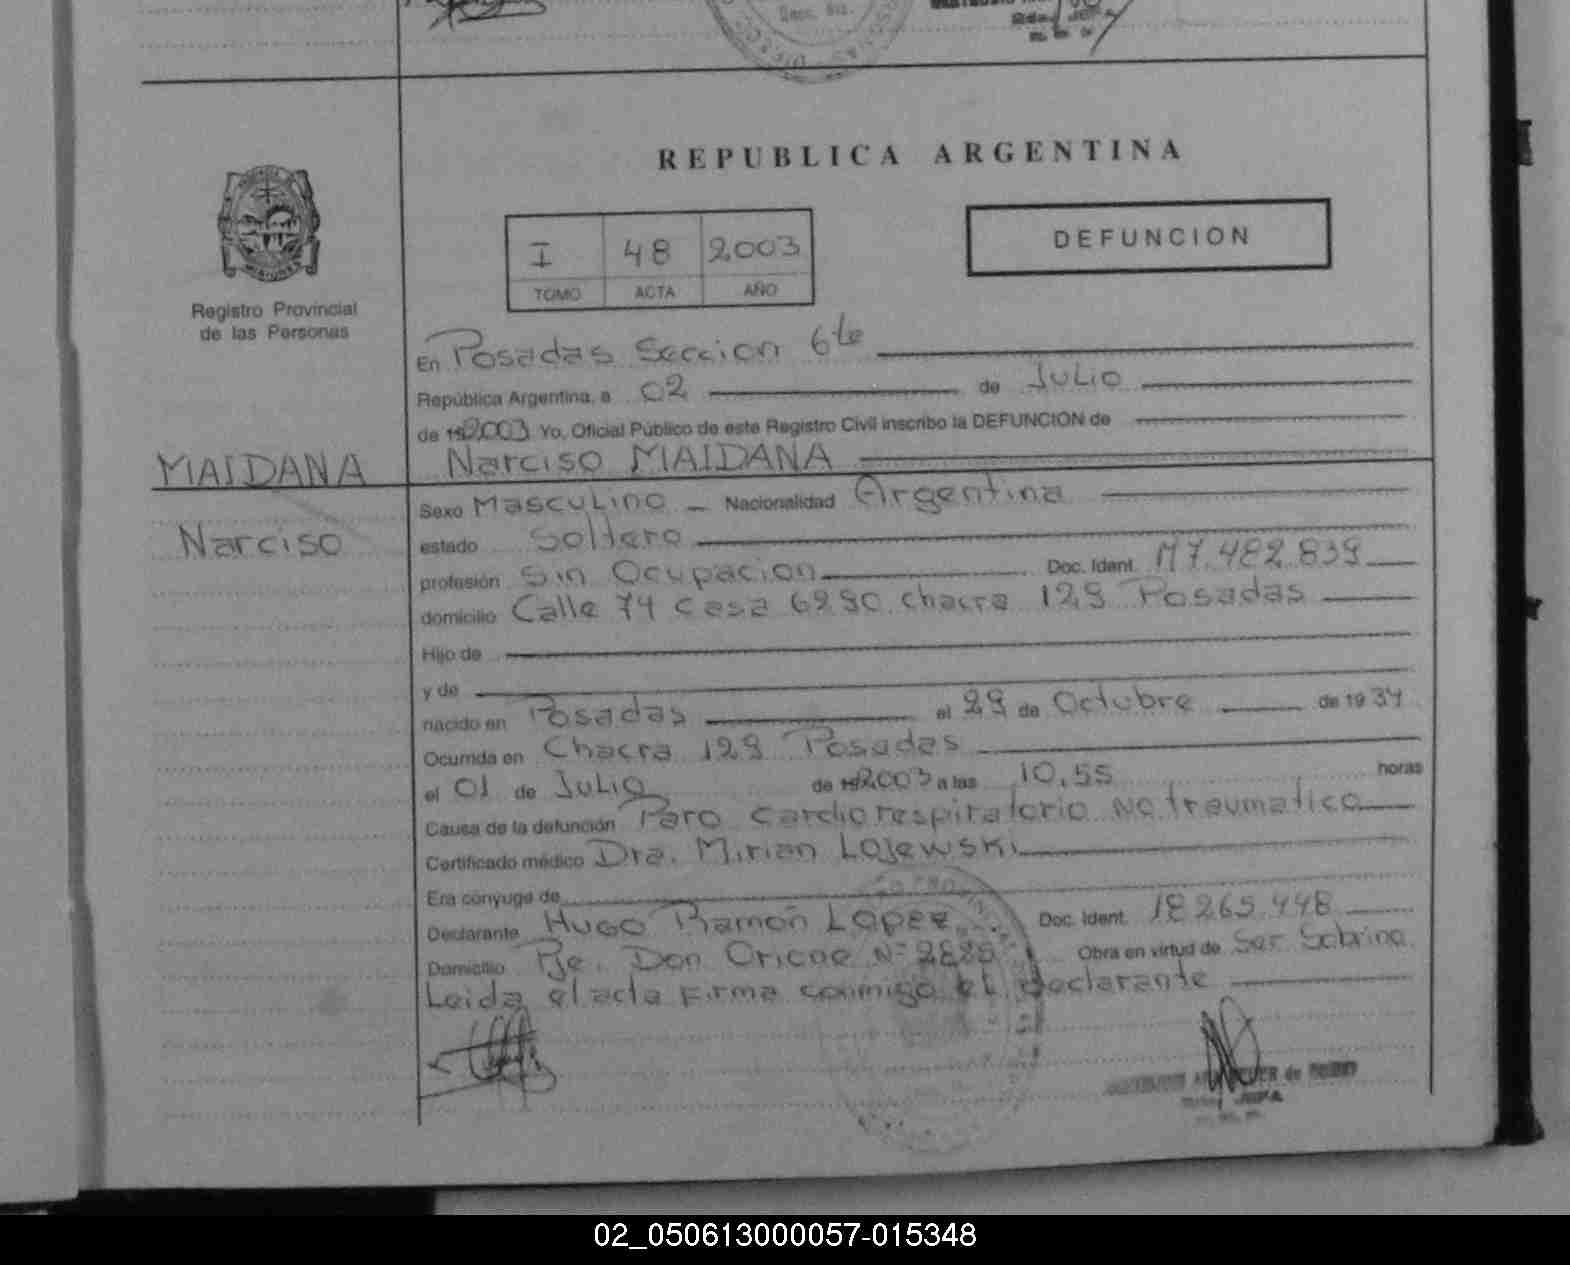 REPUBLICA ARGENTINA
DEFUNCION
I 48 2003
TOMO ACTA AÑO
Registro Provincial
de las Personas
En Posadas Seccion 6ta
República Argentina, a 02 de Julio
de 2003 Yo, Oficial Público de este Registro Civil inscribo la DEFUNCION de
MAIDANA
Narciso
Narciso MAIDANA
Sexo Masculino Nacionalidad Argentina
estado Soltero
profesión Sin Ocupacion Doc. Ident. M7.482.839
domicilio Calle 74 Casa 6290 chacra 129 Posadas
Hijo de
y de
nacido en Posadas el 29 de Octubre de 1934
Ocurrida en Chacra 129 Posadas
el 01 de Julio de 2003 a las 10,55 horas
Causa de la defunción Paro cardiorespiratorio no traumatico
Certificado médico Dra. Mirian Lojewski
Era cónyuge de
Declarante Hugo Ramón Lopez Doc. Ident. 18.265.448
Domicilio Pje. Don Nº Obra en virtud de Ser Sobrino
Leida el acta firma conmigo el declarante
02_050613000057-015348